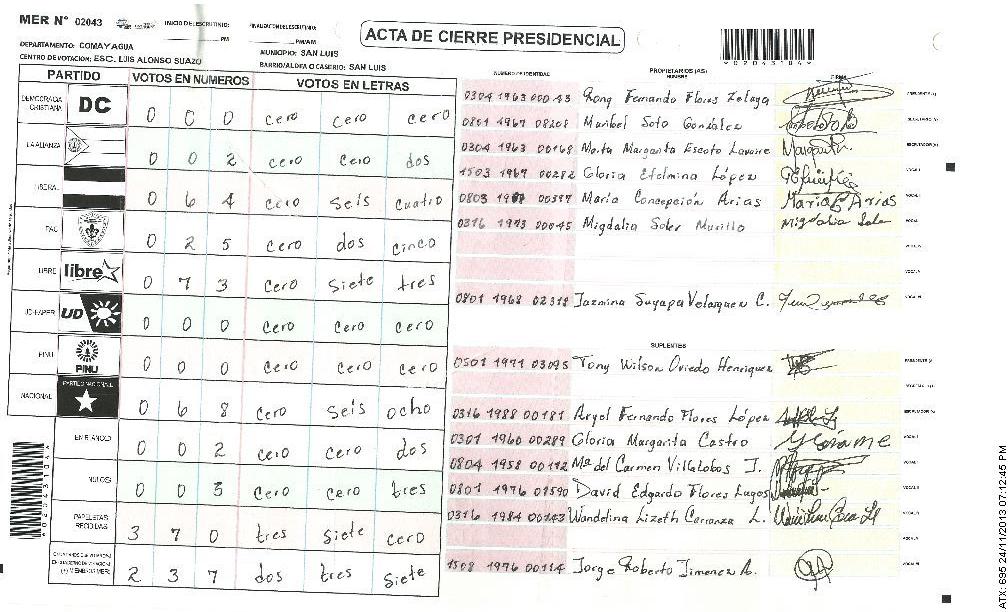 MER N° 02043
INICIO DEL ESCRUTINIO:
PM
FINALIZACION DEL ESCRUTINIO:
PM/AM
ACTA DE CIERRE PRESIDENCIAL
DEPARTAMENTO: COMAYAGUA
MUNICIPIO: SAN LUIS
CENTRO DE VOTACION: ESC. LUIS ALONSO SUAZO
BARRIO/ALDEA O CASERIO: SAN LUIS
PARTIDO VOTOS EN NUMEROS VOTOS EN LETRAS
DEMOCRACIA CRISTIANA DC 0 0 0 cero cero cero
LA ALIANZA 0 0 2 cero cero dos
LIBERAL 0 6 4 cero seis cuatro
PAC 0 2 5 cero dos cinco
LIBRE libre 0 7 3 cero siete tres
UD-FAPER UD 0 0 0 cero cero cero
PINU PINU 0 0 0 cero cero cero
NACIONAL PARTIDO NACIONAL 0 6 8 cero seis ocho
EN BLANCO 0 0 2 cero cero dos
NULOS 0 0 3 cero cero tres
PAPELETAS RECIBIDAS 3 7 0 tres siete cero
2 3 7 dos tres siete
NUMERO DE IDENTIDAD PROPIETARIOS (AS) NOMBRE FIRMA
0304 1963 00043 Rony Fernando Flores Zelaya
0801 1967 08208 Maribel Soto González
0304 1963 00168 Marta Margarita Escoto Lavaire
1503 1967 00282 Gloria Etelmina López
0803 00397 María Concepción Arias
0316 1973 00045 Migdalia Soler Murillo Migdalia Soler
0801 1968 02318 Jazmina Suyapa Velasquez C.
SUPLENTES
0501 1971 03095 Tony Wilson Oviedo Henriquez
0316 1988 00181 Aryol Fernando Flores López
0301 1960 00289 Gloria Margarita Castro
0804 1958 00112 Mª del Carmen Villalobos J.
0801 1976 01590 David Edgardo Flores Lagos
0316 1984 00143 Wandelina Lizeth Carranza L.
1508 1976 00114 Jorge Roberto Jimenez A.
ATX: 695 24/11/2013 07:12:45 PM